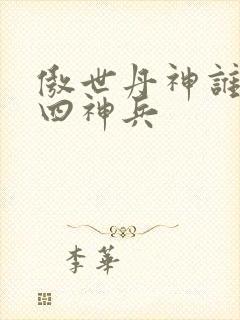 傲世丹神誰
四神兵
李華